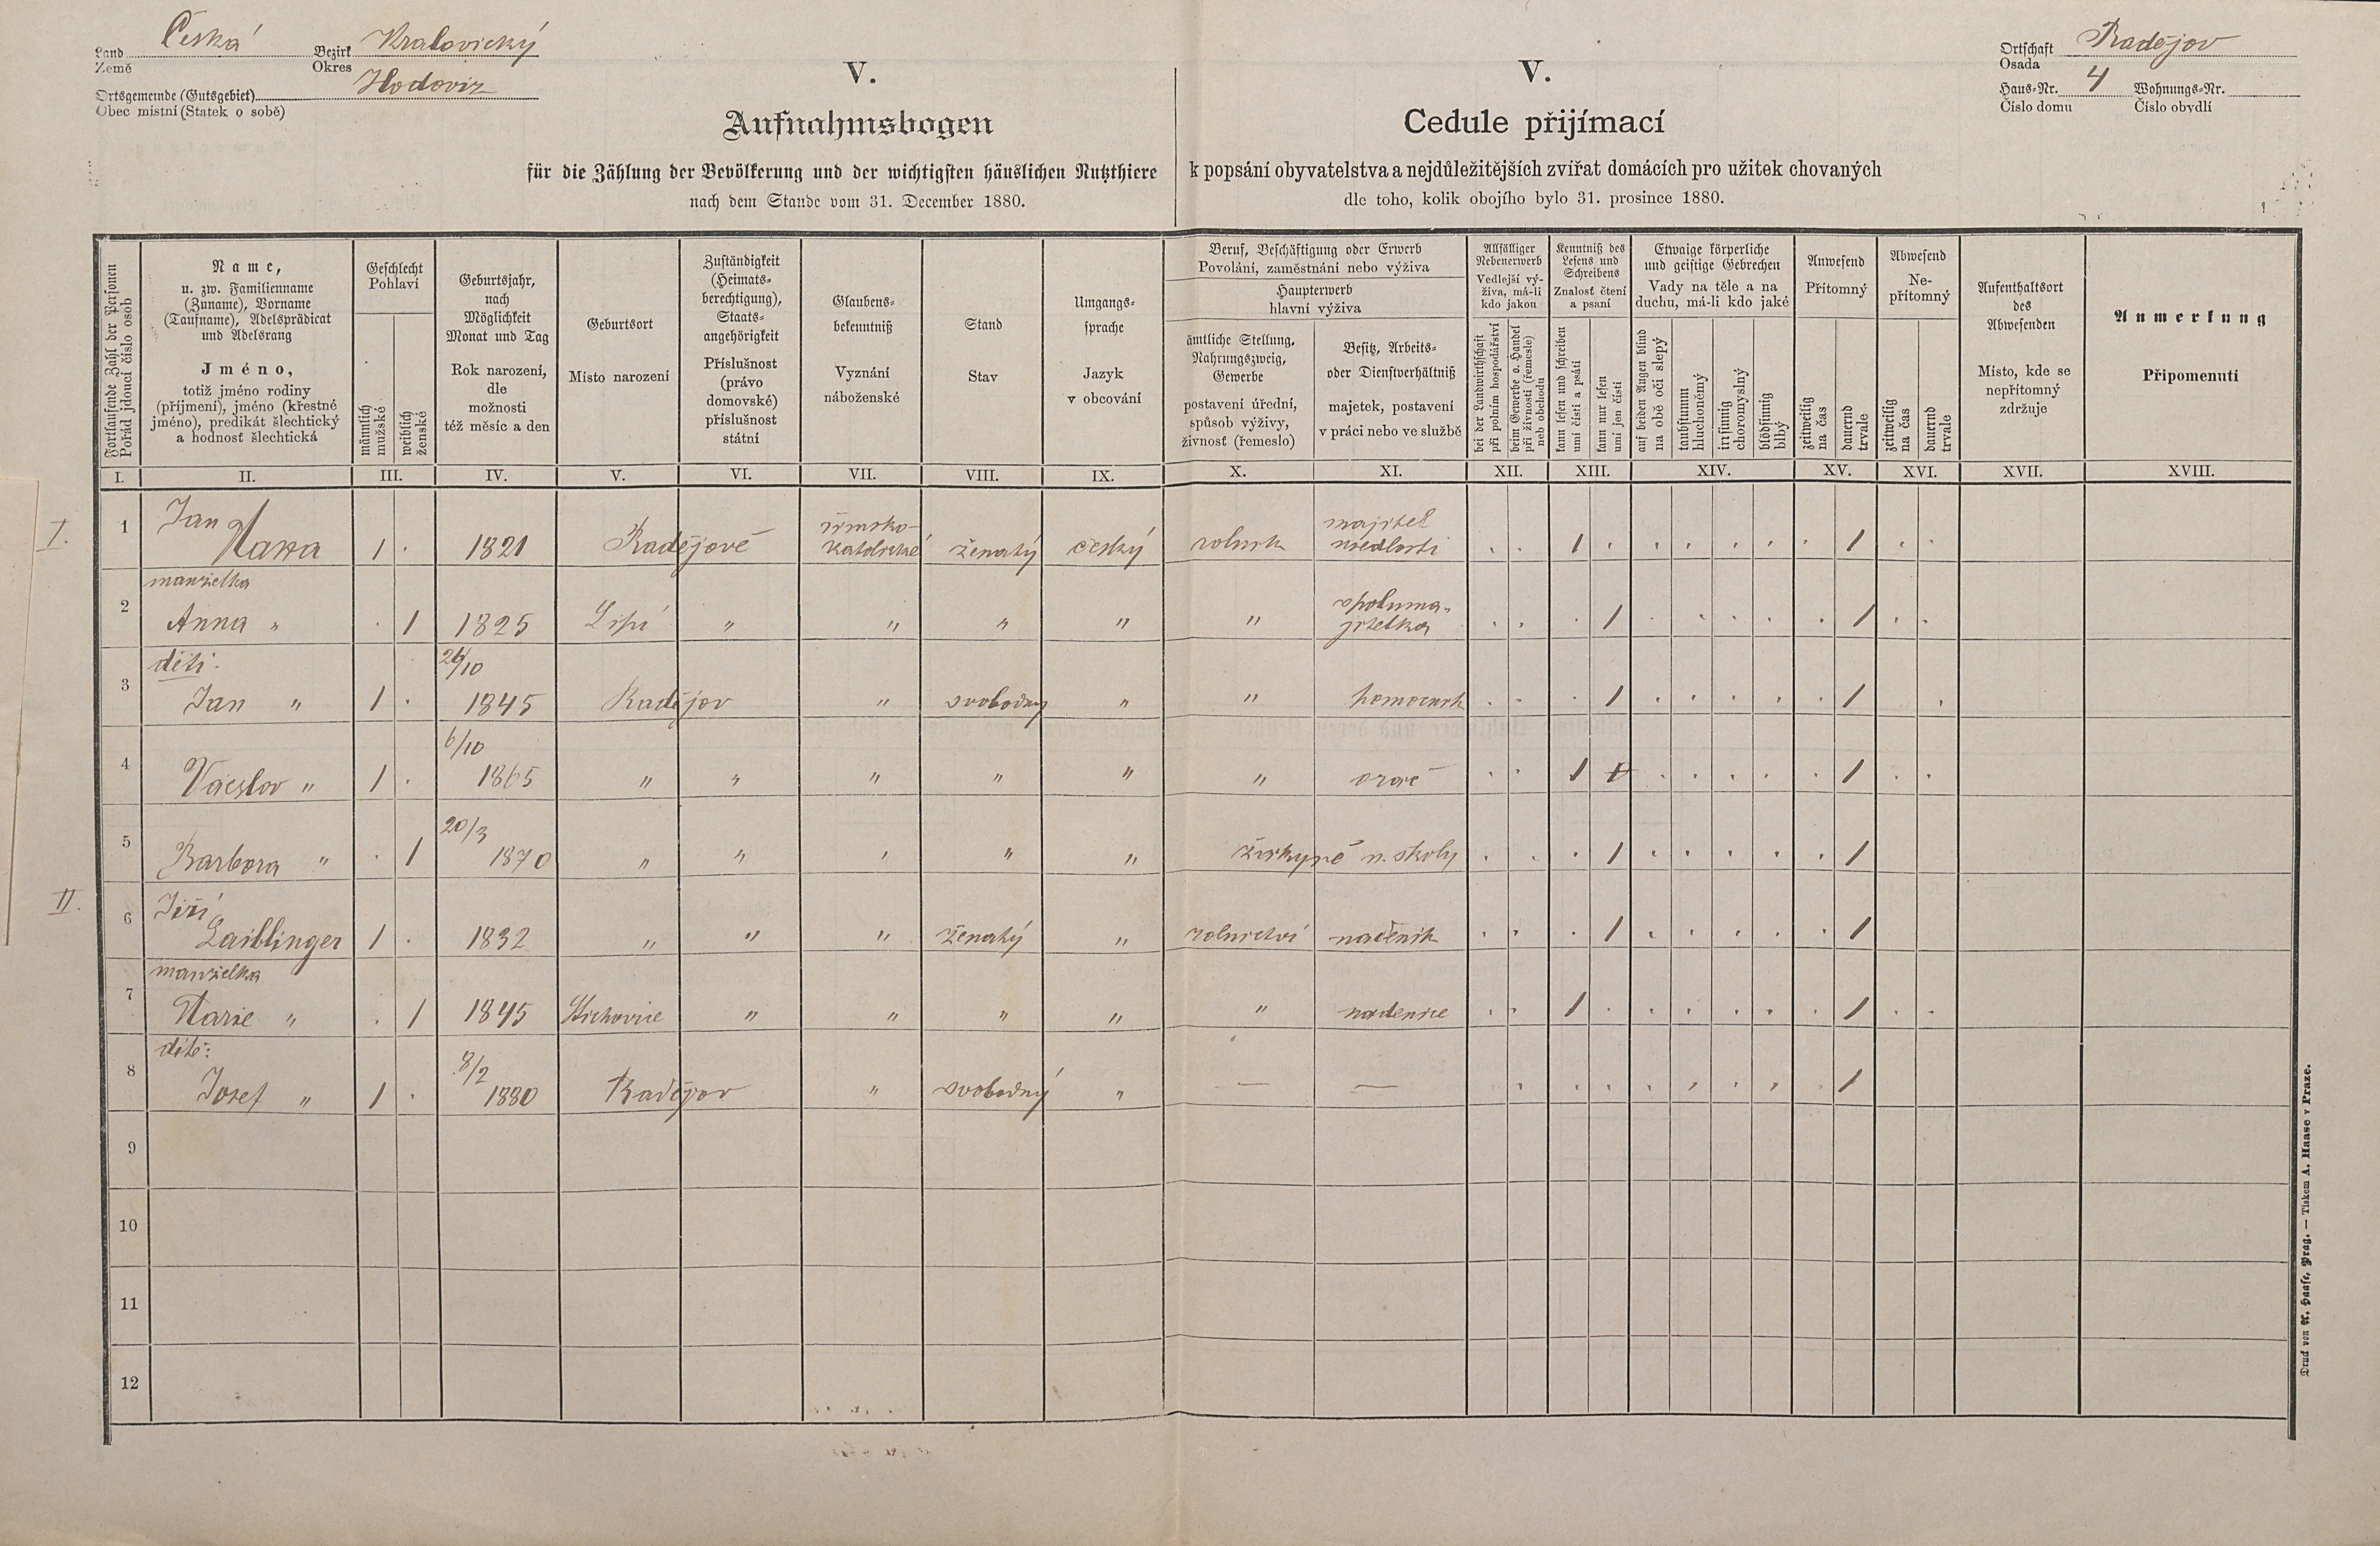 Land Česká Bezirk Kralovický
Země Okres
Ortsgemeinde (Gutsgebiet) Hodoviz
Obec místní (Statek o sobě)
Ortschaft Radějov
Osada
Haus-Nr. 4 Wohnungs-Nr.
Číslo domu Číslo obydlí
V.
Aufnahmsbogen
für die Zählung der Bevölkerung und der wichtigsten häuslichen Nutzthiere
nach dem Stande vom 31. December 1880.
V.
Cedule přijímací
k popsání obyvatelstva a nejdůležitějších zvířat domácích pro užitek chovaných
dle toho, kolik obojího bylo 31. prosince 1880.
Fortlaufende Zahl der Personen
Pořád jdoucí číslo osob
Name,
u. zw. Familienname
(Zuname), Vorname
(Taufname), Adelsprädicat
und Adelsrang
Jméno,
totiž jméno rodiny
(příjmení), jméno (křestné
jméno), predikát šlechtický
a hodnosť šlechtická
Geschlecht
Pohlaví
männlich
mužské
weiblich
ženské
Geburtsjahr,
nach
Möglichkeit
Monat und Tag
Rok narození,
dle
možnosti
též měsíc a den
Geburtsort
Místo narození
Zuständigkeit
(Heimats-
berechtigung),
Staats-
angehörigkeit
Příslušnost
(právo
domovské)
příslušnost
státní
Glaubens-
bekenntniß
Vyznání
náboženské
Stand
Stav
Umgangs-
sprache
Jazyk
v obcování
Beruf, Beschäftigung oder Erwerb
Povolání, zaměstnání nebo výživa
Haupterwerb
hlavní výživa
ämtliche Stellung,
Nahrungszweig,
Gewerbe
postavení úřední,
spůsob výživy,
živnosť (řemeslo)
Besitz, Arbeits-
oder Dienstverhältniß
majetek, postavení
v práci nebo ve službě
Allfälliger
Nebenerwerb
Vedlejší vý-
živa, má-li
kdo jakou
bei der Landwirthschaft
při polním hospodářství
beim Gewerbe o. Handel
při živnosti (řemesle)
neb obchodu
Kenntniß des
Lesens und
Schreibens
Znalosť čtení
a psaní
kann lesen und schreiben
umí čísti a psáti
kann nur lesen
umí jen čísti
Etwaige körperliche
und geistige Gebrechen
Vady na těle a na
duchu, má-li kdo jaké
auf beiden Augen blind
na obě oči slepý
taubstumm
hluchoněmý
irrsinnig
choromyslný
blödsinnig
blbý
Anwesend
Přítomný
zeitweilig
na čas
dauernd
trvale
Abwesend
Ne-
přítomný
zeitweilig
na čas
dauernd
trvale
Aufenthaltsort
des
Abwesenden
Místo, kde se
nepřítomný
zdržuje
Anmerkung
Připomenutí
I. II. III. IV. V. VI. VII. VIII. IX. X. XI. XII. XIII. XIV. XV. XVI. XVII. XVIII.
I. 1 Jan
1 . 1821 Radějově římsko-katolické ženatý český rolník majitel usedlosti . . 1 . . . . . . 1 . .
manželka
2 Anna " . 1 1825 Lipí " " " " " spoluma-jitelka . . . 1 . . . . . 1 . .
děti
3 Jan " 1 . 26/10 1845 Radějov " svobodný " " pomocník . . . 1 . . . . . 1 .
4 Václav " 1 . 6/10 1865 " " " " " " orač . . 1 . . . . . 1 . .
5 Barbora " . 1 20/3 1870 " " " " " žákyně n. školy . . . 1 . . . . . 1
II. 6 Jiří
Laiblinger 1 . 1832 " " " ženatý " rolnictví nádeník . . . 1 . . . . . 1
manželka
7 Marie " . 1 1845 " " " " " nádenice . . 1 . . . . . . 1 . .
dítě:
8 Josef " 1 . 8/2 1880 Radějov " svobodný " — — . . . . . . . . 1
9
10
11
12
Druck von A. Haase, Prag. — Tiskem A. Haase v Praze.